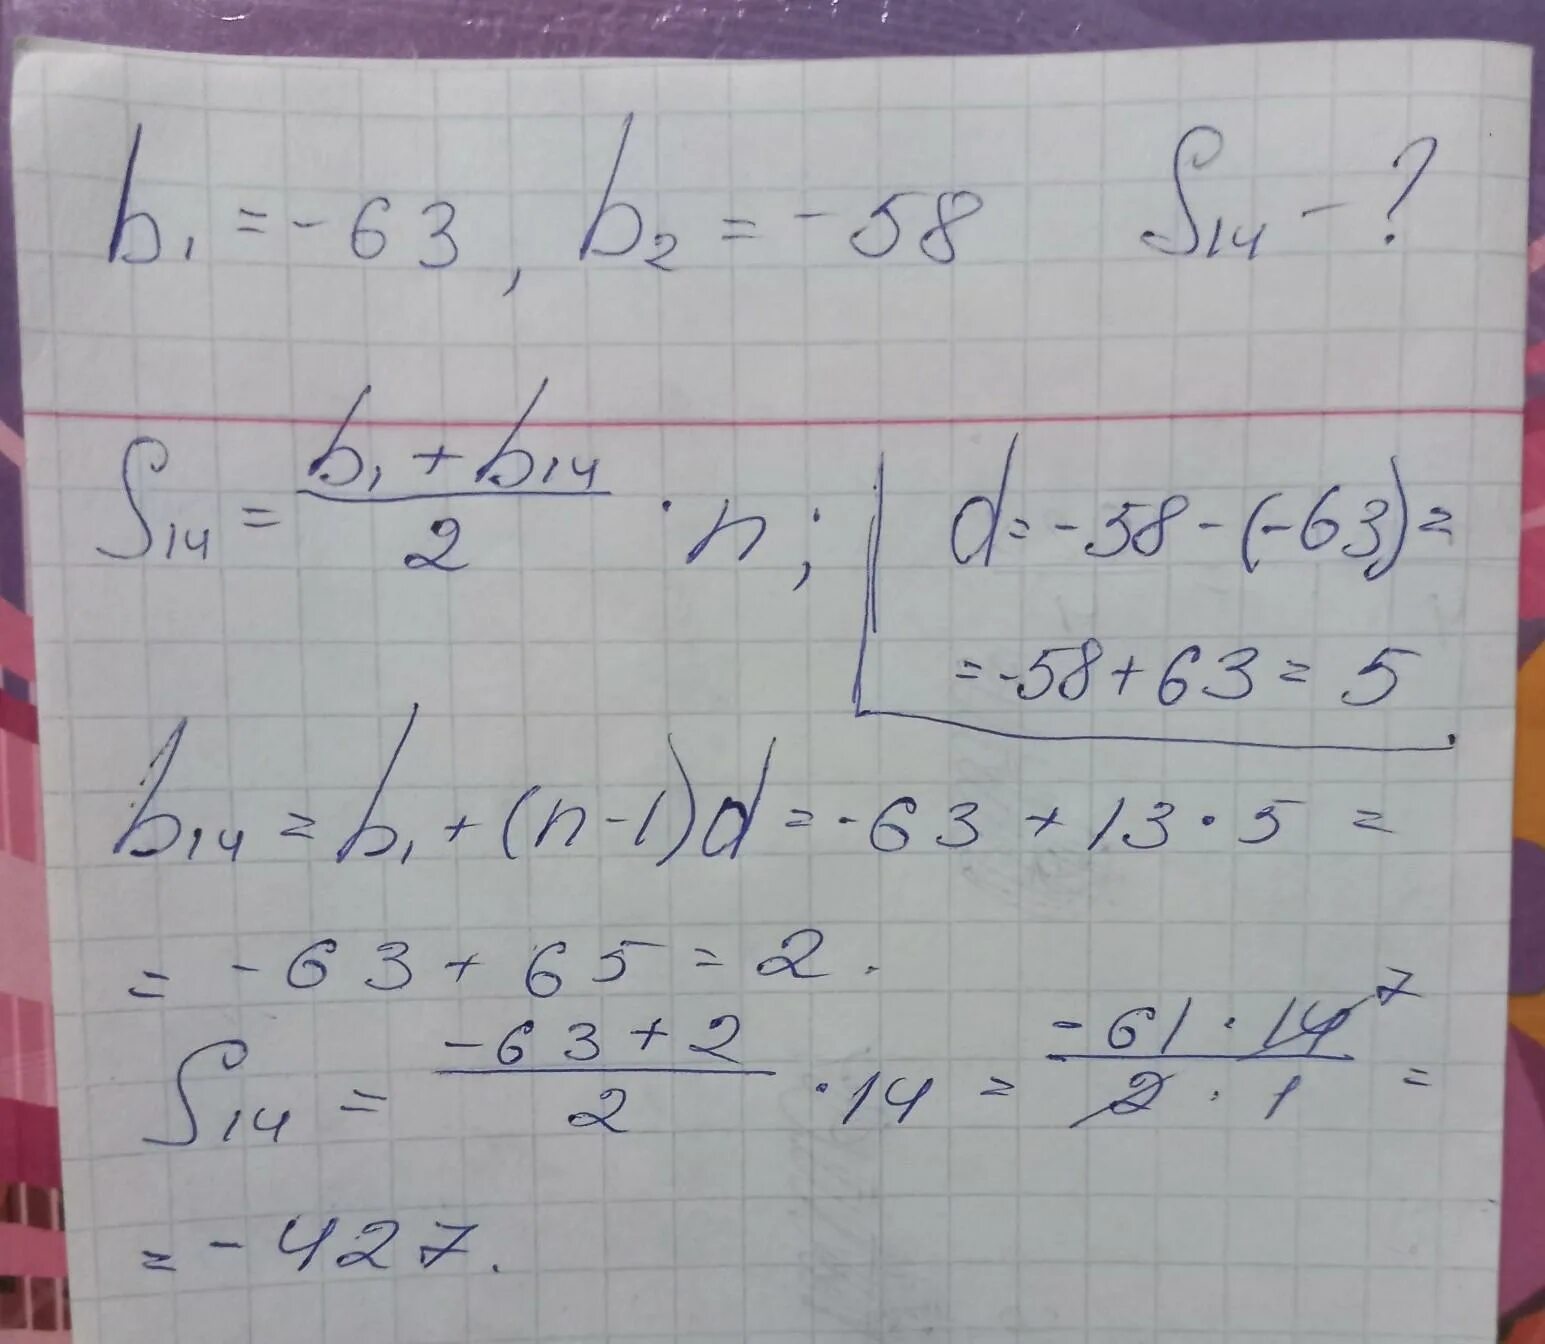 b₁ = -63, b₂ = -58 S₁₄ - ?
S₁₄ = (b₁ + b₁₄)/2 · n;
d = -58 - (-63) =
= -58 + 63 = 5
b₁₄ = b₁ + (n-1)d = -63 + 13 · 5 =
= -63 + 65 = 2.
S₁₄ = (-63 + 2)/2 · 14 = (-61 · 14 7)/(2 · 1) =
= -427.